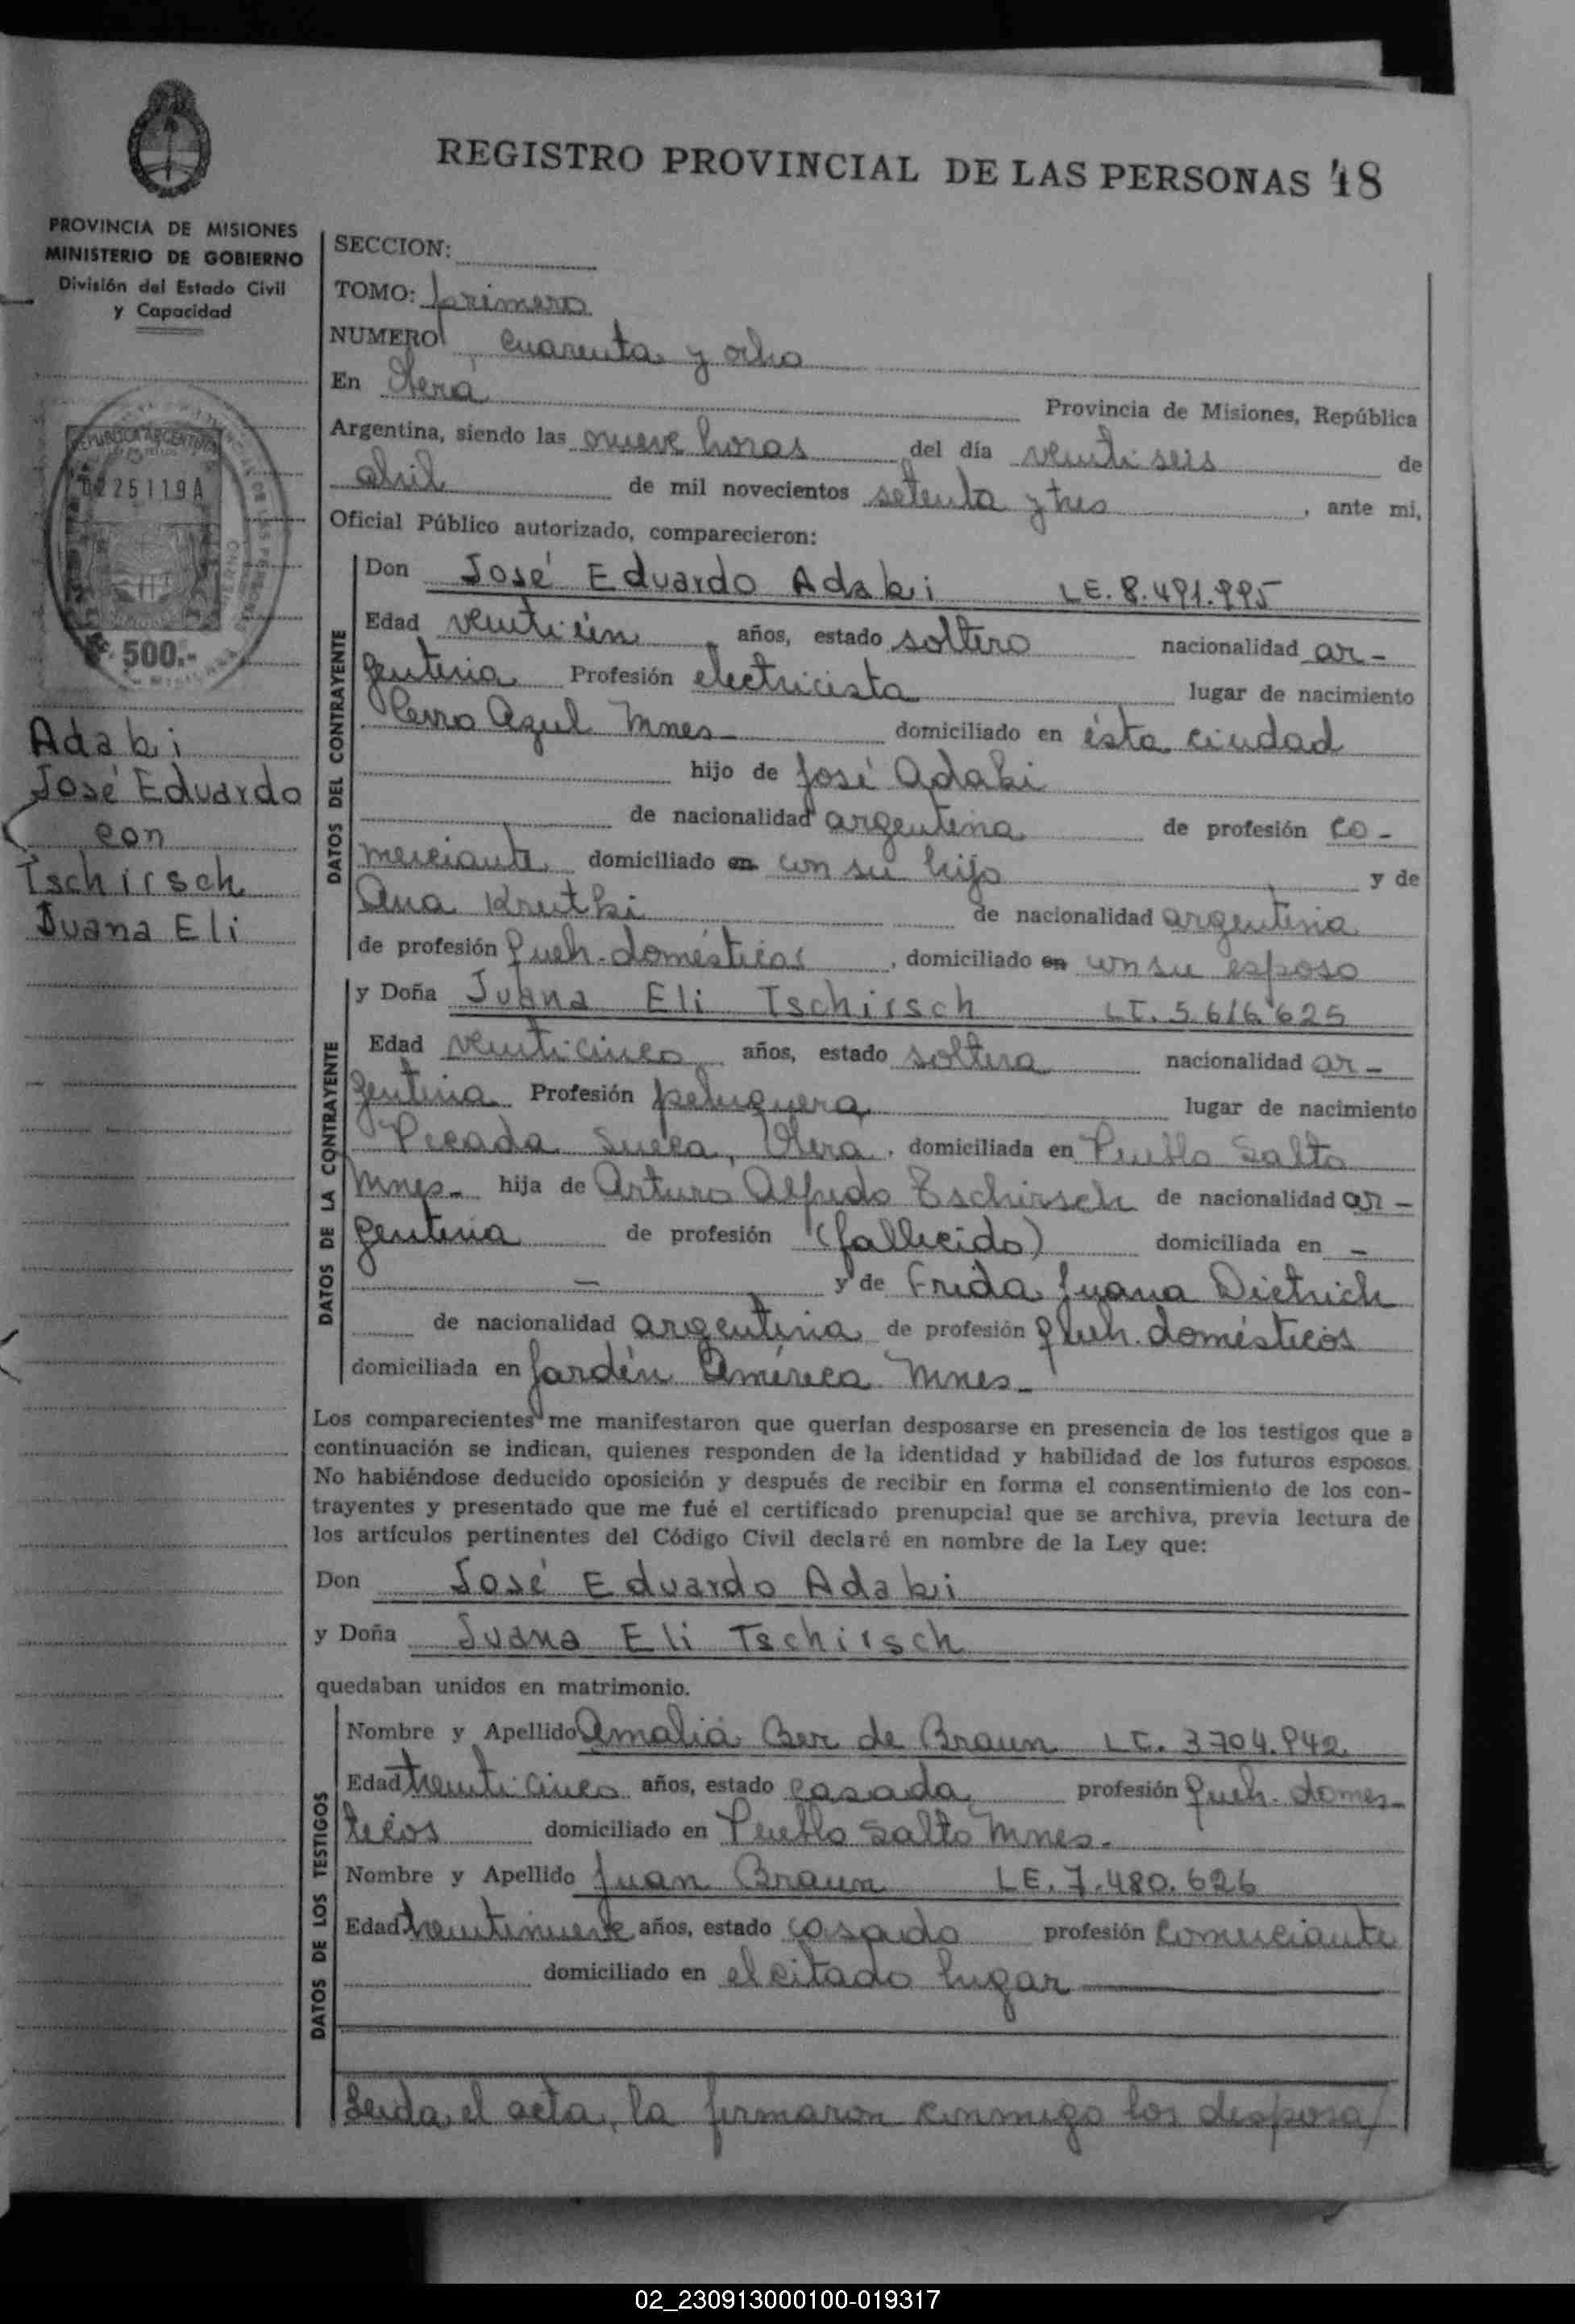 REGISTRO PROVINCIAL DE LAS PERSONAS 48
PROVINCIA DE MISIONES
MINISTERIO DE GOBIERNO
División del Estado Civil
y Capacidad
REPUBLICA ARGENTINA
0225119A
500.-
Adaki
José Eduardo
con
Tschirsch
Juana Eli
SECCION:
TOMO: primero
NUMERO cuarenta y ocho
En Oberá Provincia de Misiones, República
Argentina, siendo las nueve horas del día veintiseis de
abril de mil novecientos setenta y tres, ante mi,
Oficial Público autorizado, comparecieron:
DATOS DEL CONTRAYENTE
Don José Eduardo Adaki LE. 8.491.995
Edad veintiún años, estado soltero nacionalidad ar-
gentina Profesión electricista lugar de nacimiento
Cerro Azul Mnes- domiciliado en ésta ciudad
hijo de José Adaki
de nacionalidad argentina de profesión co-
merciante domiciliado en con su hijo y de
Ana Krutki de nacionalidad argentina
de profesión queh. domésticos, domiciliado en con su esposo
DATOS DE LA CONTRAYENTE
y Doña Juana Eli Tschirsch LC. 5.616.625
Edad veinticinco años, estado soltera nacionalidad ar-
gentina Profesión peluquera lugar de nacimiento
Picada Sueca, Oberá, domiciliada en Puerto Salto
Mnes- hija de Arturo Alfredo Tschirsch de nacionalidad ar-
gentina de profesión (fallecido) domiciliada en -
- y de Frida Juana Dietrich
de nacionalidad argentina de profesión queh. domésticos
domiciliada en Jardín América Mnes-
Los comparecientes me manifestaron que querían desposarse en presencia de los testigos que a
continuación se indican, quienes responden de la identidad y habilidad de los futuros esposos.
No habiéndose deducido oposición y después de recibir en forma el consentimiento de los con-
trayentes y presentado que me fué el certificado prenupcial que se archiva, previa lectura de
los artículos pertinentes del Código Civil declaré en nombre de la Ley que:
Don José Eduardo Adaki
y Doña Juana Eli Tschirsch
quedaban unidos en matrimonio.
DATOS DE LOS TESTIGOS
Nombre y Apellido Amalia Ber de Braun LC. 3.704.942
Edad treinticinco años, estado casada profesión queh. domés-
ticos domiciliado en Puerto Salto Mnes.
Nombre y Apellido Juan Braun LE. 7.480.626
Edad treintinueve años, estado casado profesión comerciante
domiciliado en el citado lugar
Leida el acta, la firmaron conmigo los desposa/
02_230913000100-019317